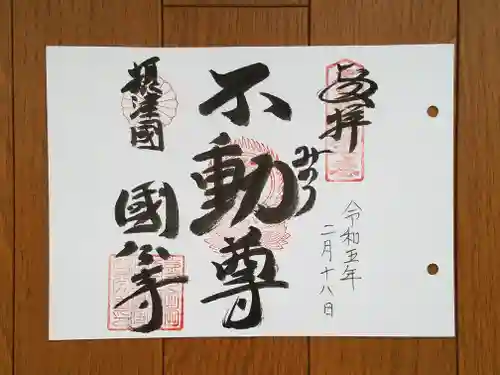 奉拝
令和五年
二月十八日
不動尊
みのり
摂津國
國分寺